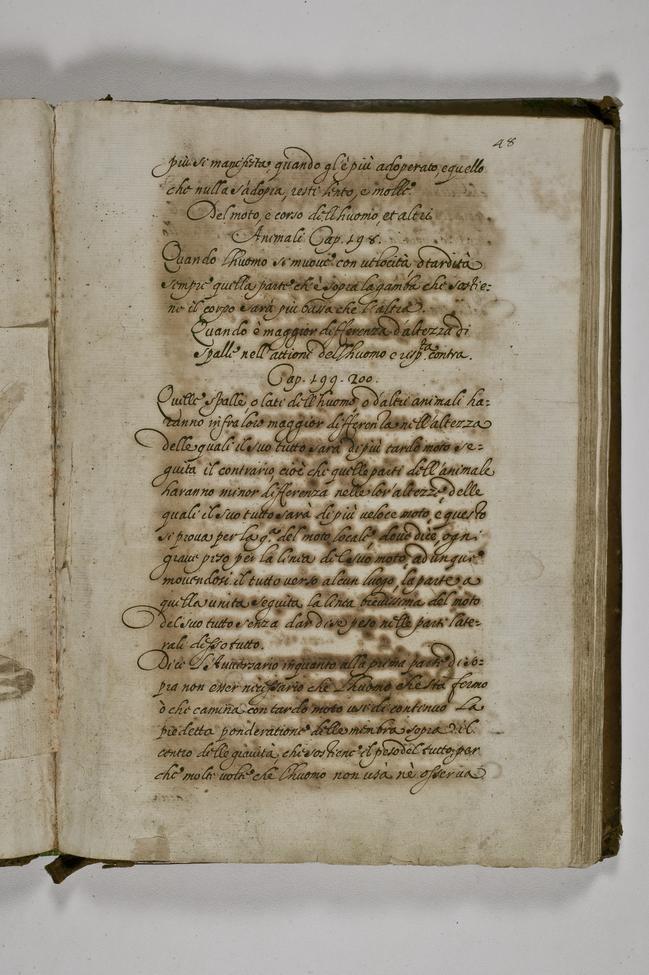 48
più si manifesta, quando gl'è più adoperato, e quello
che nulla s'adopra, resti lento, e molle.
Del moto, e corso dell'huomo, et altri
Animali Cap. 198.
Quando l'huomo si muove con velocità ò tardità
sempre quella parte ch'è sopra la gamba che sostie:
ne il corpo sarà più bassa che l'altra.
Quando è maggior differenza d'altezza di
spalle nell'attione dell'huomo e risp.ta contra.
Cap. 199. 200.
Quelle spalle, o lati dell'huomo, o d'altri animali ha:
ranno infra loro maggior differenza nell'altezza
delle quali il suo tutto sarà di più tardo moto se:
guita il contrario cioè che quelle parti dell'animale
haranno minor differenza nelle lor'altezze, delle
quali il suo tutto sarà di più veloce moto, e questo
si prova per la 9.a del moto locale, dove dice, ogni
grave pesa per la linea del suo moto, adunque
movendosi il tutto verso alcun luogo, la parte a
quella unita seguita la linea brevissima del moto
del suo tutto senza dar di se peso nelle parti late:
rali d'esso tutto.
Dice l'Avversario inquanto alla prima parte di so:
pra non esser necessario che l'huomo che sta fermo
ò che camina con tardo moto usi di continuo la
pre detta ponderatione delle membra sopra il
centro delle gravità che sostiene il peso del tutto, per
che molte volte che l'huomo non usa nè osserva